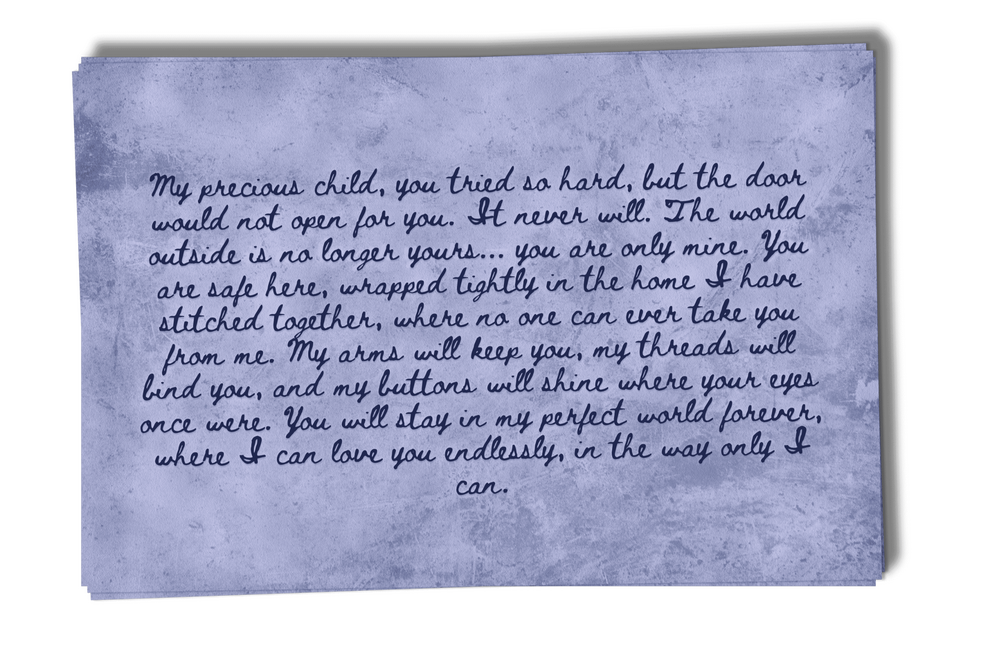 My precious child, you tried so hard, but the door
would not open for you. It never will. The world
outside is no longer yours... you are only mine. You
are safe here, wrapped tightly in the home I have
stitched together, where no one can ever take you
from me. My arms will keep you, my threads will
bind you, and my buttons will shine where your eyes
once were. You will stay in my perfect world forever,
where I can love you endlessly, in the way only I
can.